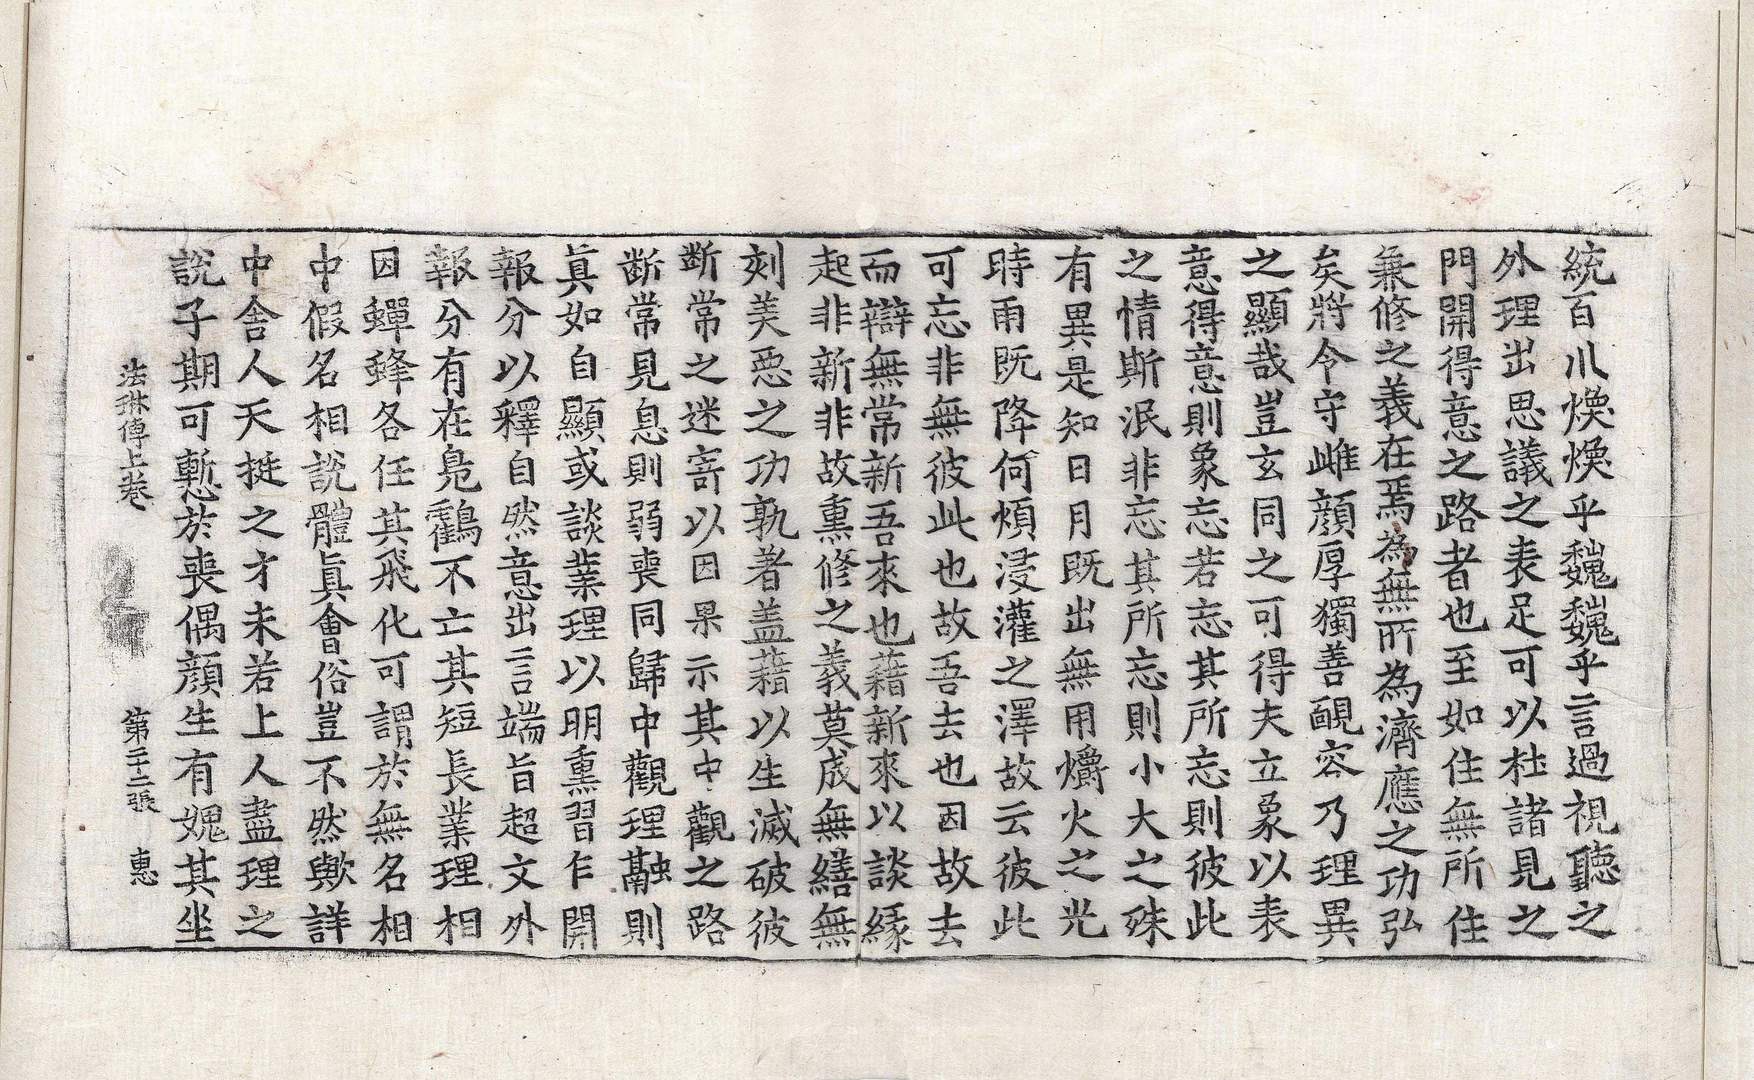 統百川煥煥乎魏魏乎言過視聽之
外理出思議之表足可以杜諸見之
門開得意之路者也至如住無所住
兼修之義在焉為無所為濟應之功弘
矣將令守雌顔厚獨善靦容乃理異
之顯哉豈玄同之可得夫立象以表
意得意則象忘若忘其所忘則彼此
之情斯泯非忘其所忘則小大之殊
有異是知日月既出無用爝火之光
時雨既降何煩浸灌之澤故云彼此
可忘非無彼此也故吾去也因故去
而辯無常新吾來也藉新來以談緣
起非新非故熏修之義莫成無繕無
刻美惡之功孰著盖藉以生滅破彼
斷常之迷寄以因果示其中觀之路
斷常見息則弱喪同歸中觀理融則
眞如自顯或談業理以明熏習乍開
報分以釋自然意出言端旨超文外
報分有在鳧鶴不亡其短長業理相
因蟬蜂各任其飛化可謂於無名相
中假名相說體眞會俗豈不然歟詳
中舍人天挺之才未若上人盡理之
說子期可慙於喪偶顔生有媿其坐
法琳傳上卷 第二十二張 惠